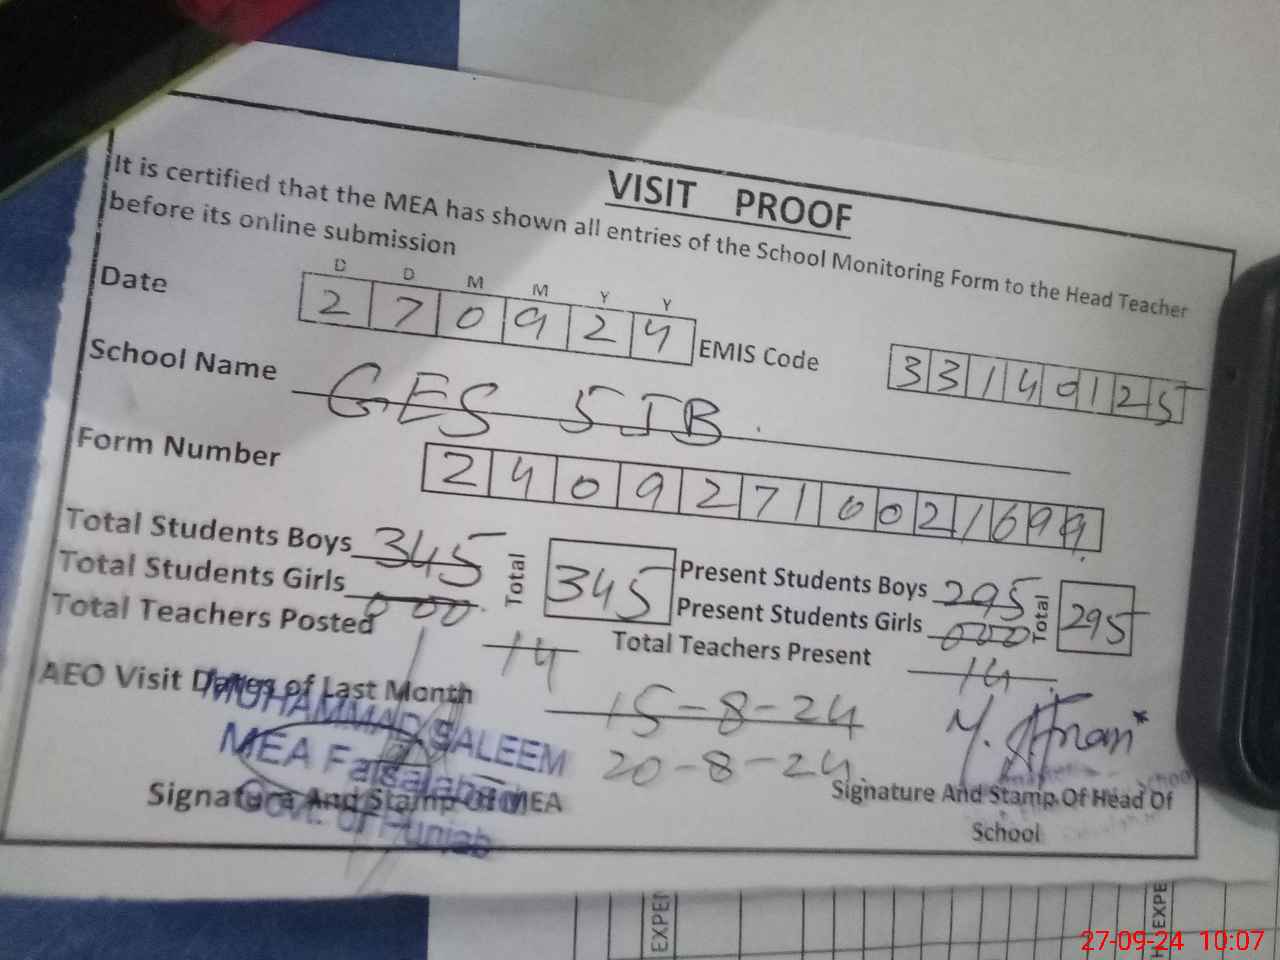 VISIT PROOF
It is certified that the MEA has shown all entries of the School Monitoring Form to the Head Teacher
before its online submission
D D M M Y Y
Date 2 7 0 9 2 4 EMIS Code 3 3 1 4 0 1 2 5
School Name GES 5JB
Form Number 2 4 0 9 2 7 1 0 0 2 1 6 9 9
Total Students Boys 345 Total 345 Present Students Boys 295 Total 295
Total Students Girls 000 Present Students Girls 000
Total Teachers Posted 14 Total Teachers Present 14
AEO Visit Dates of Last Month 15-8-24
20-8-24
MUHAMMAD SALEEM
MEA Faisalabad
Govt. of Punjab
Signature And Stamp Of MEA
Signature And Stamp Of Head Of
School
EXPEN
EXPE
27-09-24 10:07